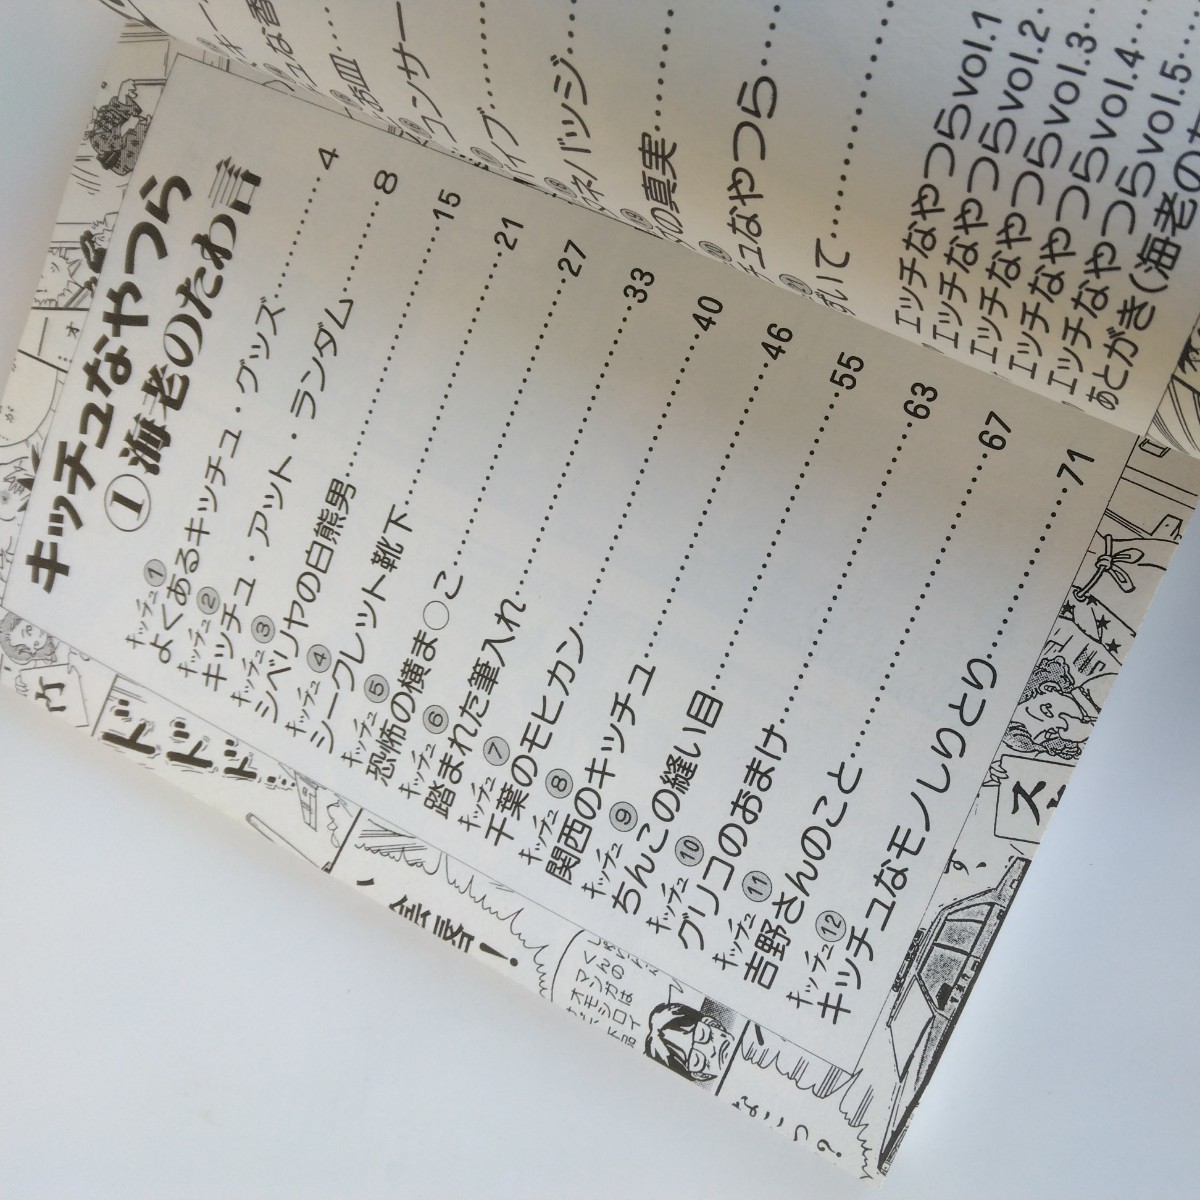 キッチュなやつら
①海老のたわ言
キッチュ①
よくあるキッチュ・グッズ……………4
キッチュ②
キッチュ・アット・ランダム……………8
キッチュ③
シベリヤの白熊男……………15
キッチュ④
シークレット靴下……………21
キッチュ⑤
恐怖の横ま○こ……………27
キッチュ⑥
踏まれた筆入れ……………33
キッチュ⑦
千葉のモヒカン……………40
キッチュ⑧
関西のキッチュ……………46
キッチュ⑨
ちんこの縫い目……………55
キッチュ⑩
グリコのおまけ……………63
キッチュ⑪
吉野さんのこと……………67
キッチュ⑫
キッチュなモノしりとり……………71
お皿……
コンサー
イブ……
バッジ……
の真実……
チュなやつら
いて……
エッチなやつらvol.1
エッチなやつらvol.2
エッチなやつらvol.3
エッチなやつらvol.4
エッチなやつらvol.5
あとがき(海老の
ドドド
くんの
マンガは
オモシロイ
ス
す、